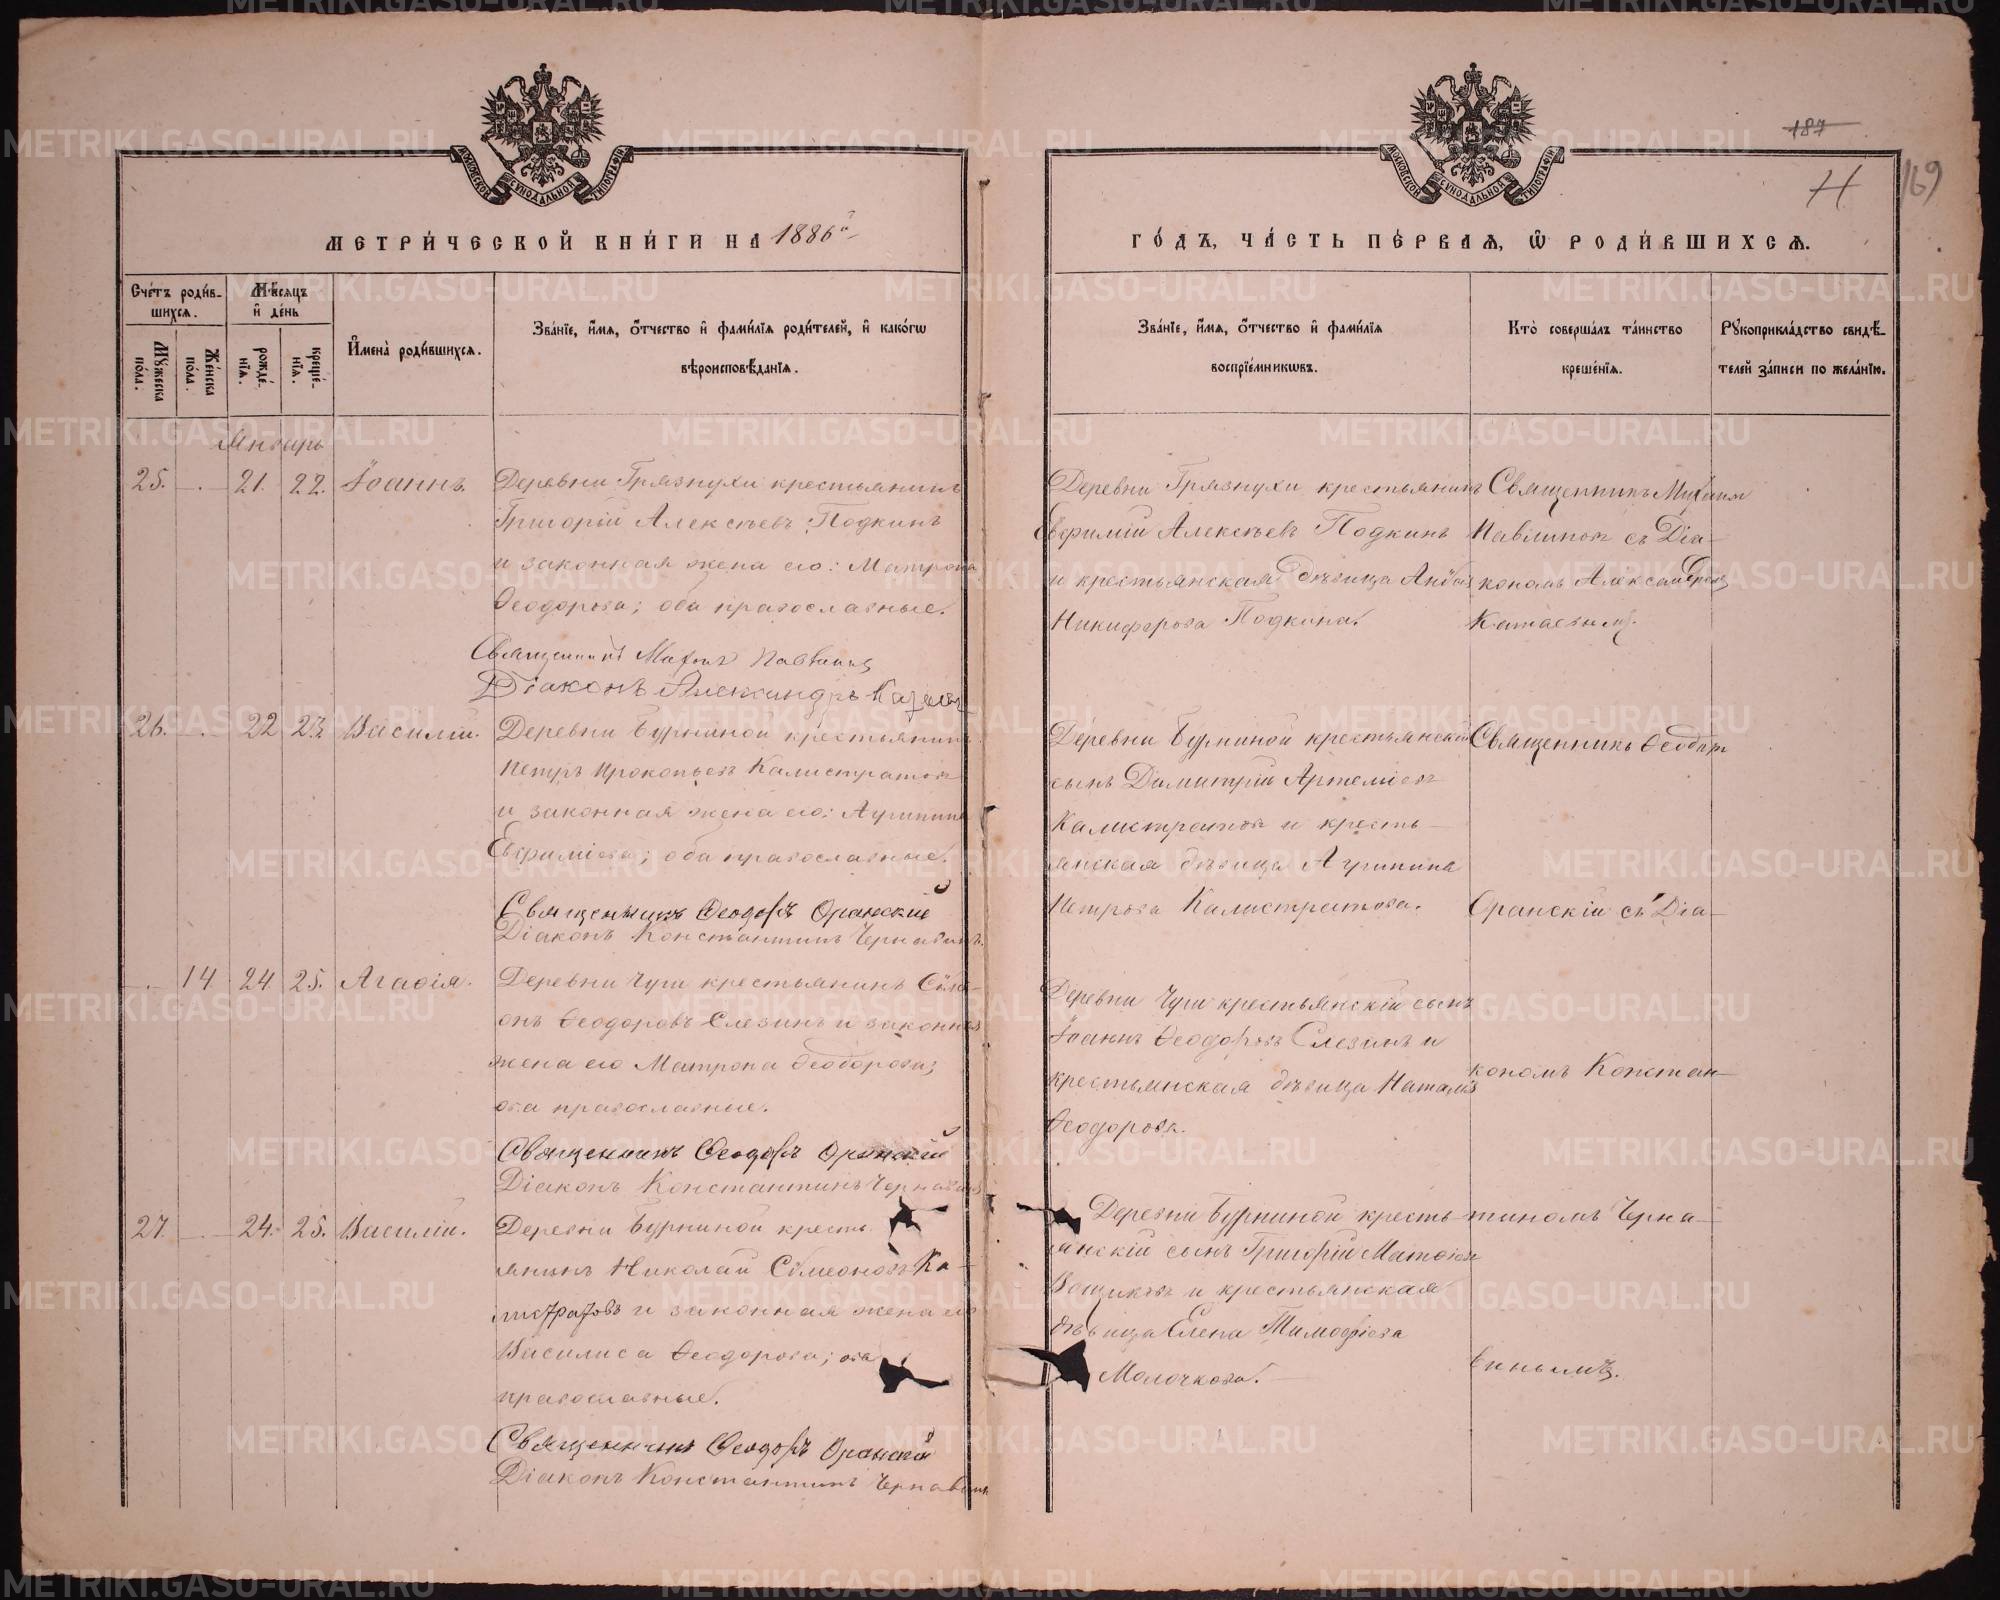 187
Н 169
МОСКОВСКОЙ СѴНОДАЛЬНОЙ ТИПОГРАФІИ
МОСКОВСКОЙ СѴНОДАЛЬНОЙ ТИПОГРАФІИ
МЕТРИ́ЧЕСКОЙ КНИ́ГИ НА 1886й
ГО́ДЪ, ЧА́СТЬ ПЕ́РВАѦ, Ѡ РОДИ́ВШИХСѦ.
Сче́тъ роди́в-
шихсѧ.
Мꙋ́жеска
по́ла.
Же́нска
по́ла.
Мѣ́сѧцъ
и҆ де́нь
рожде́-
нїѧ.
креще́-
нїѧ.
И҆мена̀ роди́вшихсѧ.
Зва́нїе, и҆́мѧ, ѻ҆́тчество и҆ фами́лїѧ роди́телей, и҆ како́гѡ
вѣроисповѣ́данїѧ.
Зва́нїе, и҆́мѧ, ѻ҆́тчество и҆ фами́лїѧ
воспрїе́мникѡвъ.
Кто̀ соверша́лъ та́инство
креще́нїѧ.
Рꙋкоприкла́дство свидѣ́-
телей за́писи по жела́нїю.
Январь
25. - 21. 22. Іоаннъ.
Деревни Грязнухи крестьянинъ
Григорій Алексѣевъ Подкинъ
и законная жена его: Матрона
Ѳеодорова; оба православные.
Священникъ Михаилъ Павлиновъ
Діаконъ Александръ Катаевъ
Деревни Грязнухи крестьянинъ
Евфимій Алексѣевъ Подкинъ
и крестьянская дѣвица
Никифорова Подкина.
Священникъ Михаилъ
Павлиновъ съ Діа-
кономъ Александромъ
Катаевымъ.
26. - 22 23. Василій.
Деревни Бурниной крестьянинъ
Петръ Прокопьевъ Калистратовъ
и законная жена его: Агрипина
Евфиміева; оба православные.
Священникъ Ѳеодоръ Оранскій
Діаконъ Константинъ Чернавинъ.
Деревни Бурниной крестьянскій
сынъ Димитрій Артеміевъ
Калистратовъ и кресть-
янская дѣвица Агрипина
Петрова Калистратова.
Священникъ Ѳеодоръ
Оранскій съ Діа-
- 14 24 25. Агаѳія.
Деревни Чуги крестьянинъ Симе-
онъ Ѳеодоровъ Слезинъ и законная
жена его Матрона Ѳеодорова;
оба православные.
Священникъ Ѳеодоръ Оранскій
Діаконъ Константинъ Чернавинъ
Деревни Чуги крестьянскій сынъ
Іоаннъ Ѳеодоровъ Слезинъ и
крестьянская дѣвица Наталія
Ѳеодорова.
кономъ Констан-
27. - 24. 25. Василій.
Деревни Бурниной кресть
янинъ Николай Симеоновъ Ка-
листратовъ и законная жена его
Василиса Ѳеодорова; оба
православные.
Священникъ Ѳеодоръ Оранскій
Діаконъ Константинъ Чернавинъ
Деревни Бурниной кресть-
янскій сынъ Григорій Матѳіевъ
и крестьянская
дѣвица Елена Тимофіева
Молочкова.
тиномъ Черна-
винымъ.
METRIKI.GASO-URAL.RU